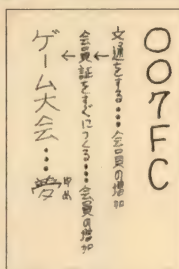 007FC
文通をする…会員の増加
←
会員証をすぐにつくる…会員の増加
←
ゲーム大会…夢
ゆめ